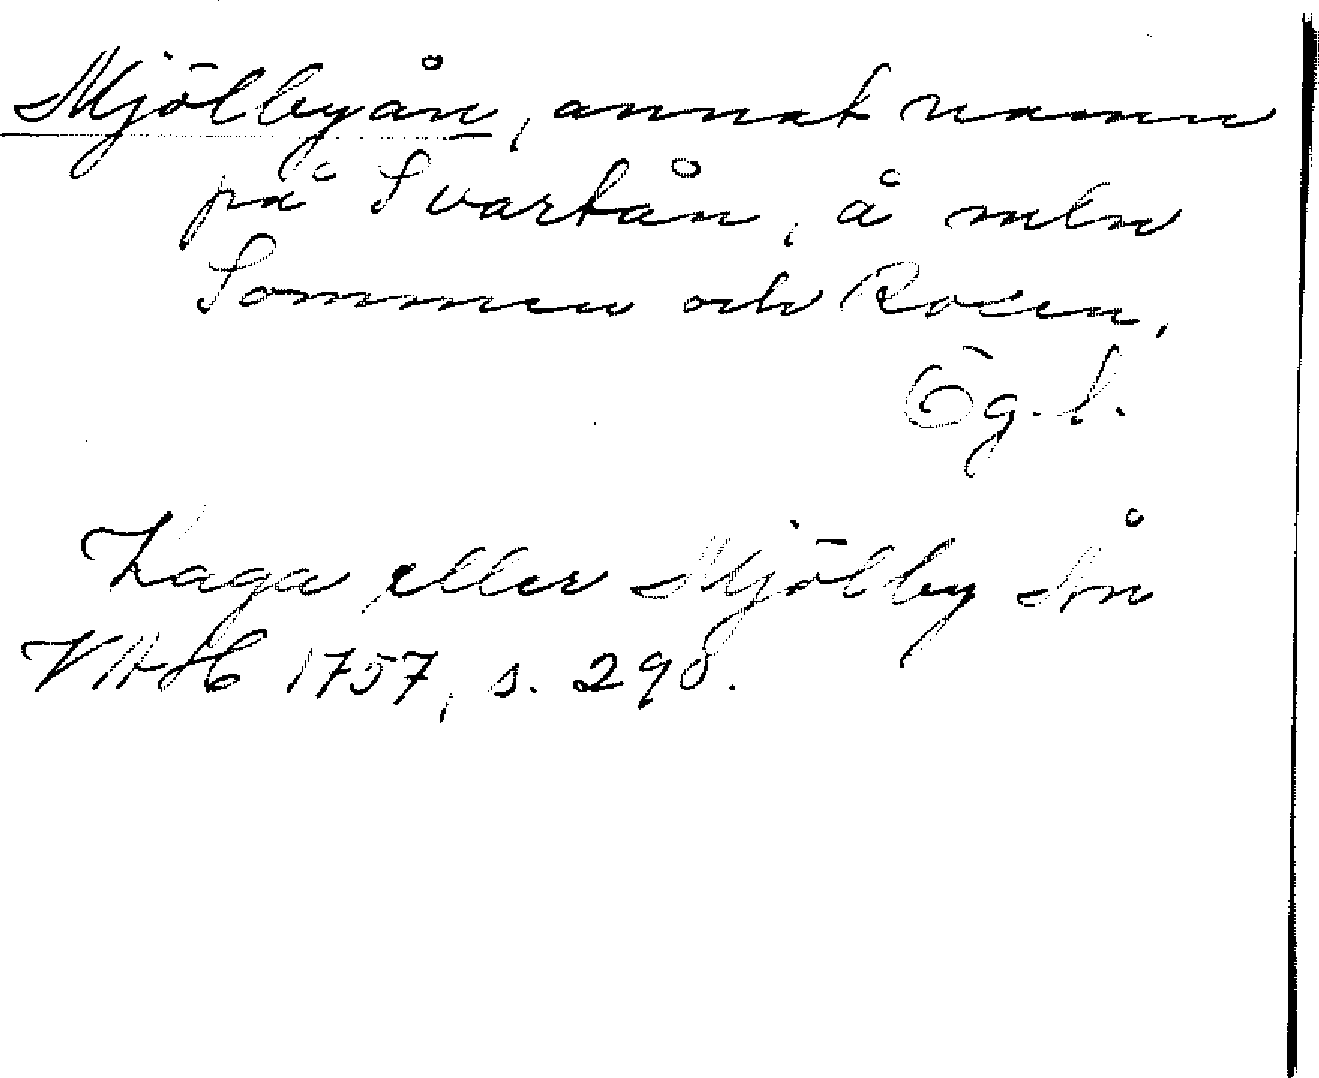 Mjölbyån, annat namn
på Svartån, å mln
Sommen och Roxen,
Ög. l.
Kaga eller Mjölby Ån
VAH 1757, s. 290.